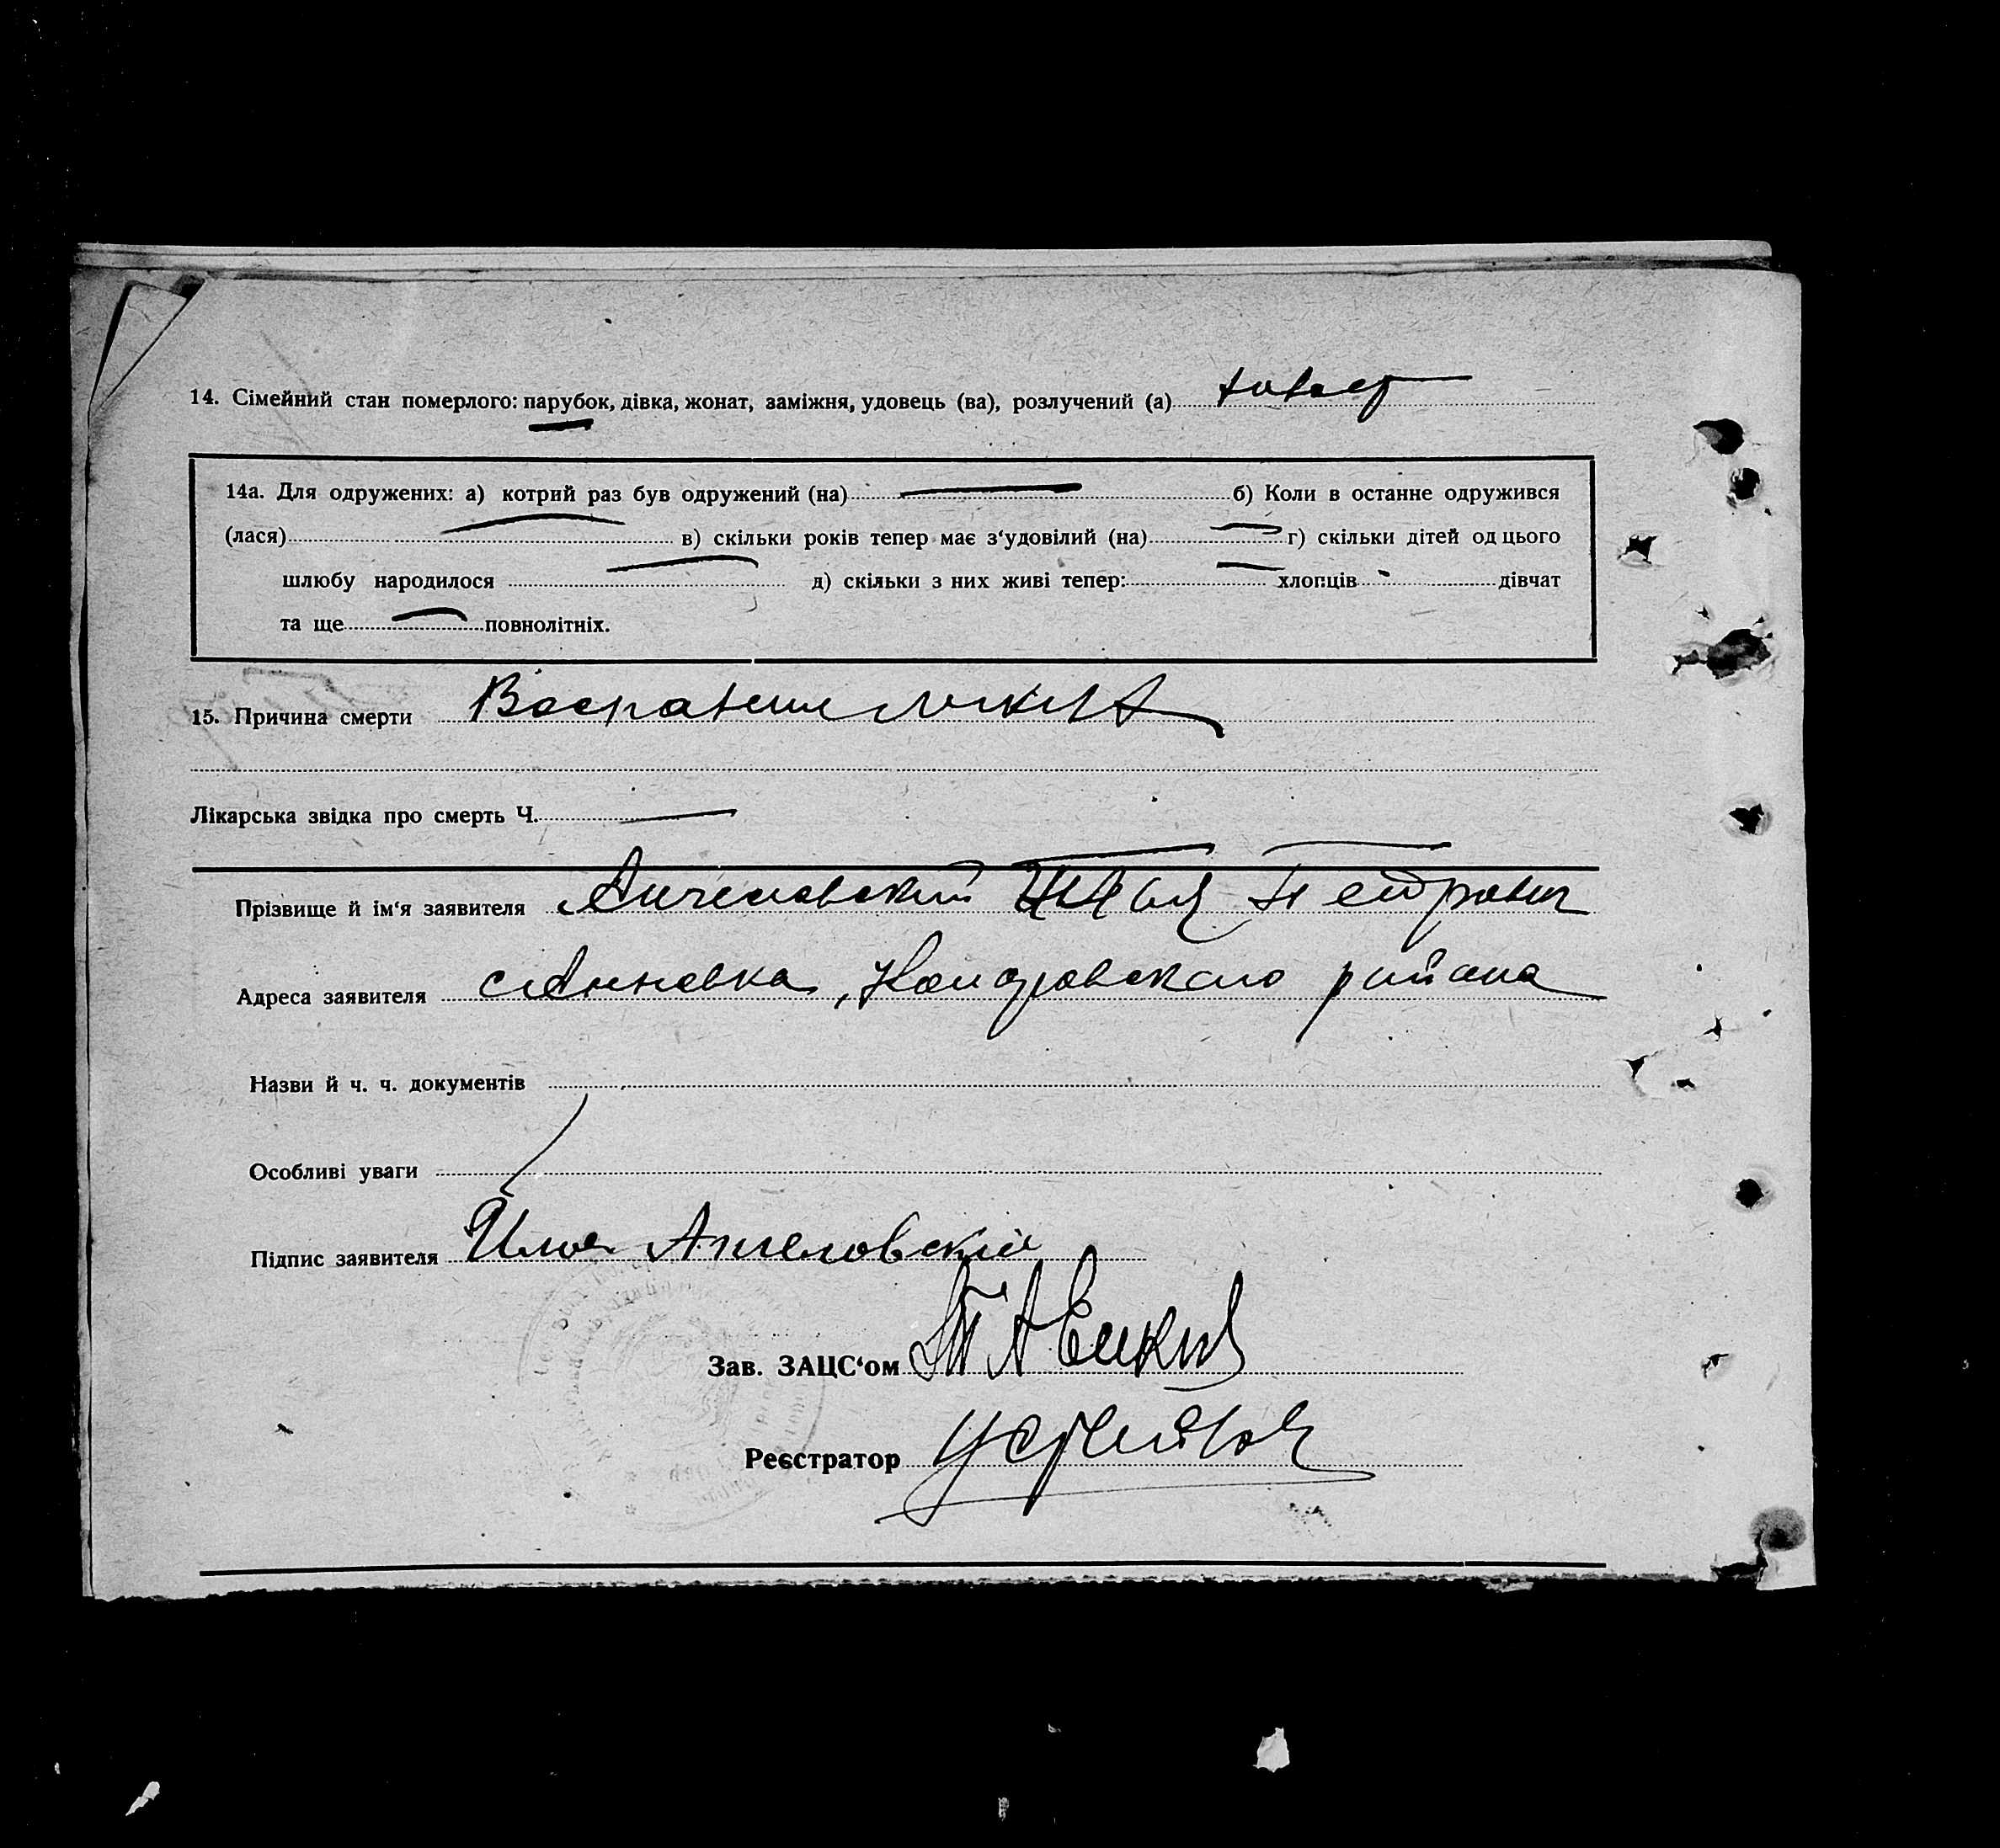 14. Сімейний стан померлого: парубок, дівка, жонат, заміжня, удовець (ва), розлучений (а)
14а. Для одружених: а) котрий раз був одружений (на) б) Коли в останне одружився
(лася) в) скільки років тепер має з‘удовілий (на) г) скільки дітей од цього
шлюбу народилося д) скільки з них живі тепер: хлопців дівчат
та ще повнолітніх.
15. Причина смерти Воспаление легких
Лікарська звідка про смерть Ч.
Прізвище й ім‘я заявителя Ангеловский Илья Петрович
Адреса заявителя с Анновка, района
Назви й ч. ч. документів
Особливі уваги
Підпис заявителя Илья Ангеловскій
Зав. ЗАЦС‘ом
Реєстратор